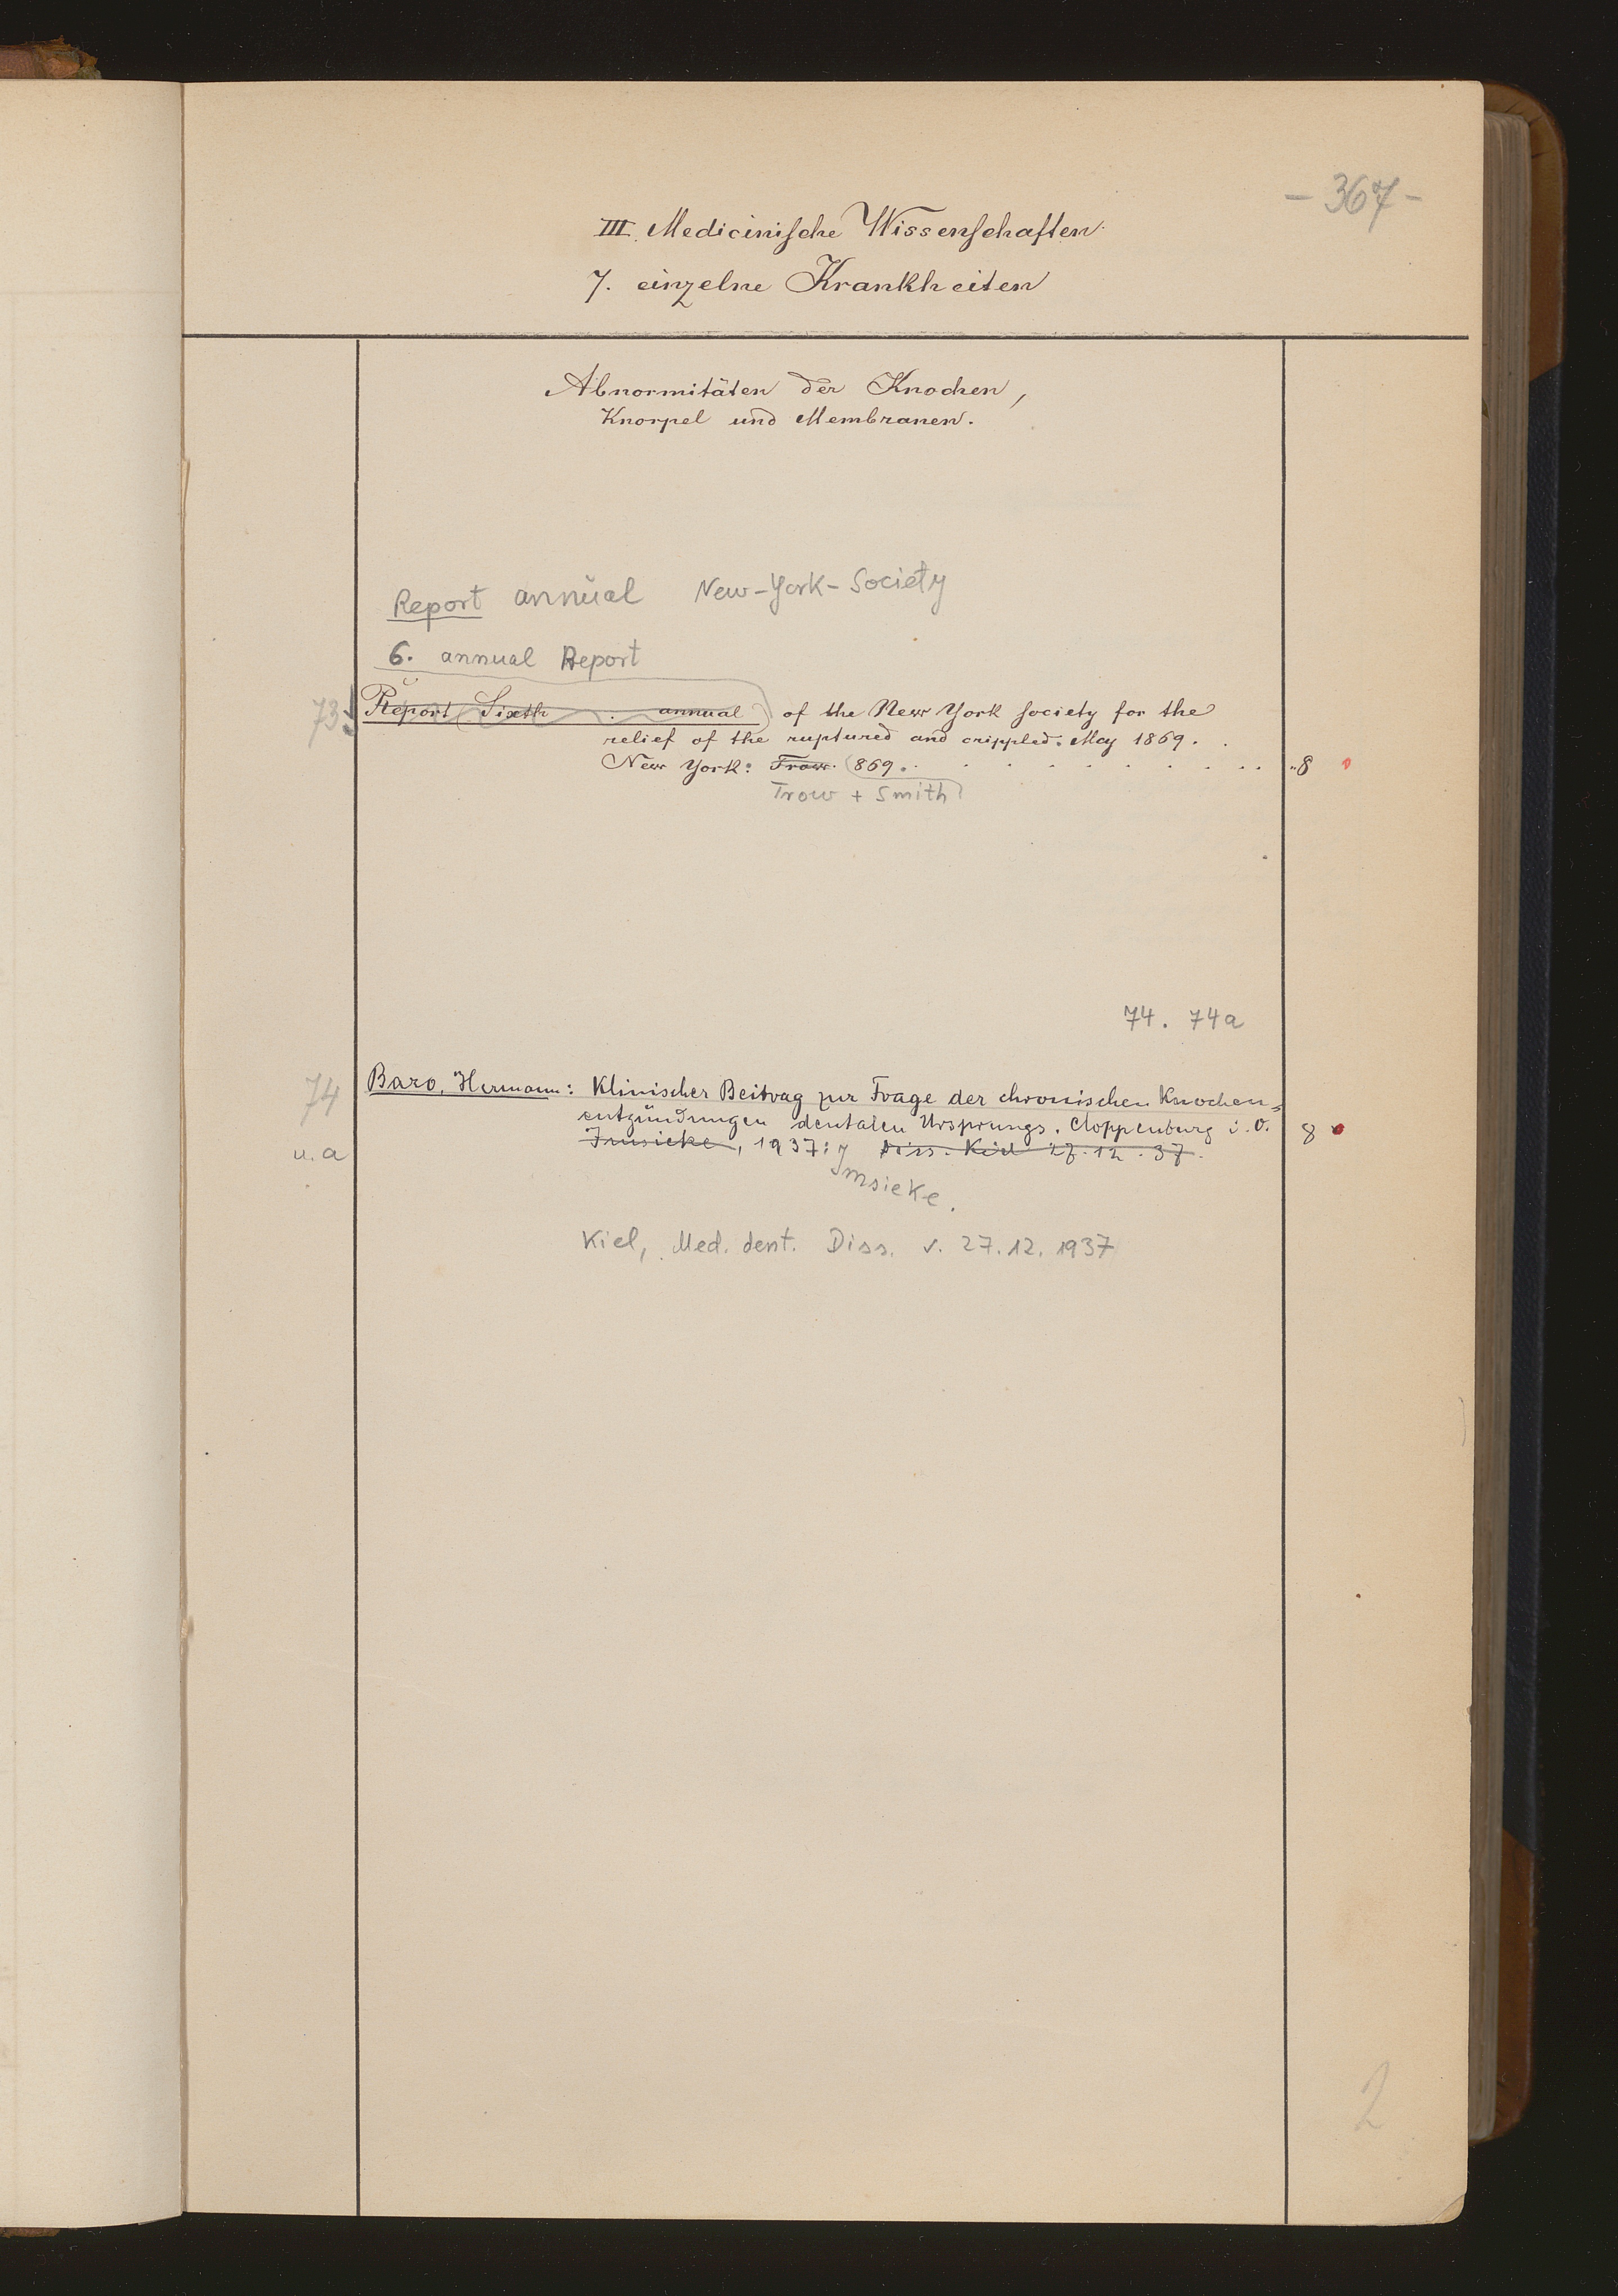 - 367 -
III. Medicinische Wissenschaften
7. einzelne Krankheiten
Abnormitäten der Knochen,
Knorpel und Membranen.
Report annual New-York-Society
6. annual Report
73 Report Sixth annual of the New York society for the
relief of the ruptured and crippled. May 1869.
New York: Trow. 869. 8
Trow + Smith
74. 74a
74 Baro, Hermann: Klinischer Beitrag zur Frage der chronischen Knochen=
entzündungen dentalen Ursprungs. Cloppenburg i. O. 8
u. a Imsieke, 1937: Diss. Kiel 27.12.37.
Imsieke.
Kiel, Med. dent. Diss. v. 27.12.1937
2